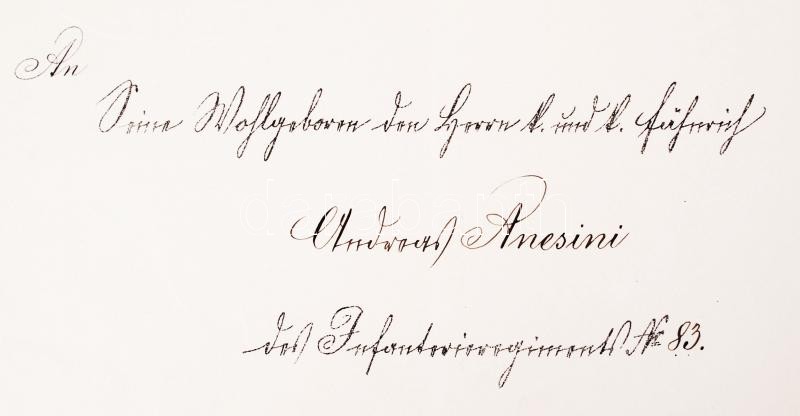 An
Seine Wohlgeboren den Herrn k. und k. Fähnrich
Andreas Anesini
des Infanterieregiments № 83.